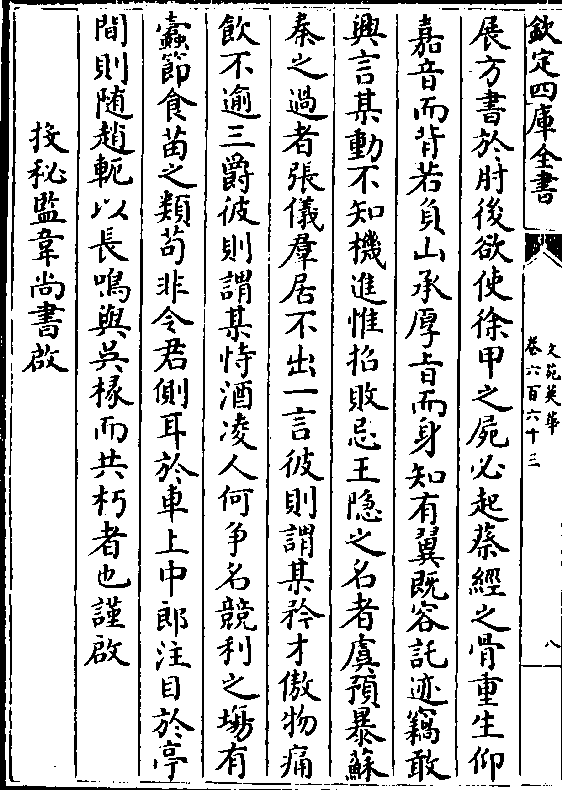 欽定四庫全書
文苑英華
卷六百六十三
八
展方書於肘後欲使徐甲之屍必起蔡經之骨重生仰
嘉音而背若負山承厚旨而身知有翼既容託迹竊敢
興言某動不知機進惟招敗忌王隐之名者虞預暴蘇
秦之過者張儀羣居不出一言彼則謂某矜才傲物痛
飲不逾三爵彼則謂某恃酒凌人何争名競利之塲有
蠧節食苗之類苟非令君側耳於車上中郎注目於亭
間則随趙軛以長鳴與吳椽而共朽者也謹啟
投秘監韋尚書啟